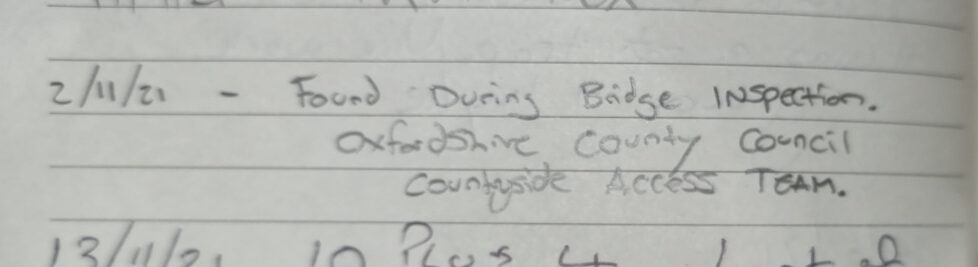 2/11/21 - Found During Bridge Inspection.
Oxfordshire County Council
Countryside Access Team.
13/11/21 10 Plus